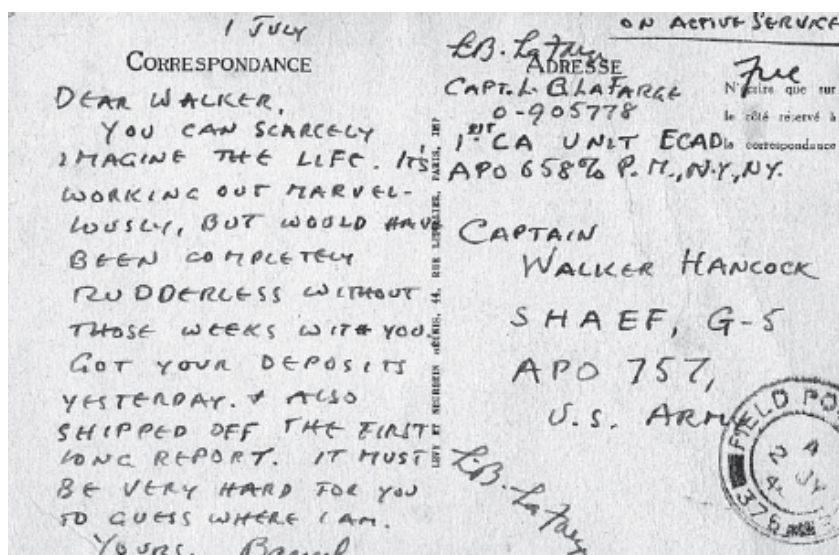 1 JULY
CORRESPONDANCE
DEAR WALKER,
YOU CAN SCARCELY
IMAGINE THE LIFE. IT'S
WORKING OUT MARVEL-
LOUSLY, BUT WOULD HAVE
BEEN COMPLETELY
RUDDERLESS WITHOUT
THOSE WEEKS WITH YOU.
GOT YOUR DEPOSITS
YESTERDAY. & ALSO
SHIPPED OFF THE FIRST
LONG REPORT. IT MUST
BE VERY HARD FOR YOU
TO GUESS WHERE I AM.
YOURS,
44, RUE PARIS,
ON ACTIVE SERVICE
L.B. LaFarge
ADRESSE
CAPT. L B LAFARGE
O-905778
1ST CA UNIT ECAD
APO 658 % P.M., N.Y., N.Y.
que sur
le côté réservé à
la correspondance
CAPTAIN
WALKER HANCOCK
SHAEF, G-5
APO 757,
U.S. ARMY
L.B. LaFarge
FIELD PO
A
2 JY
4